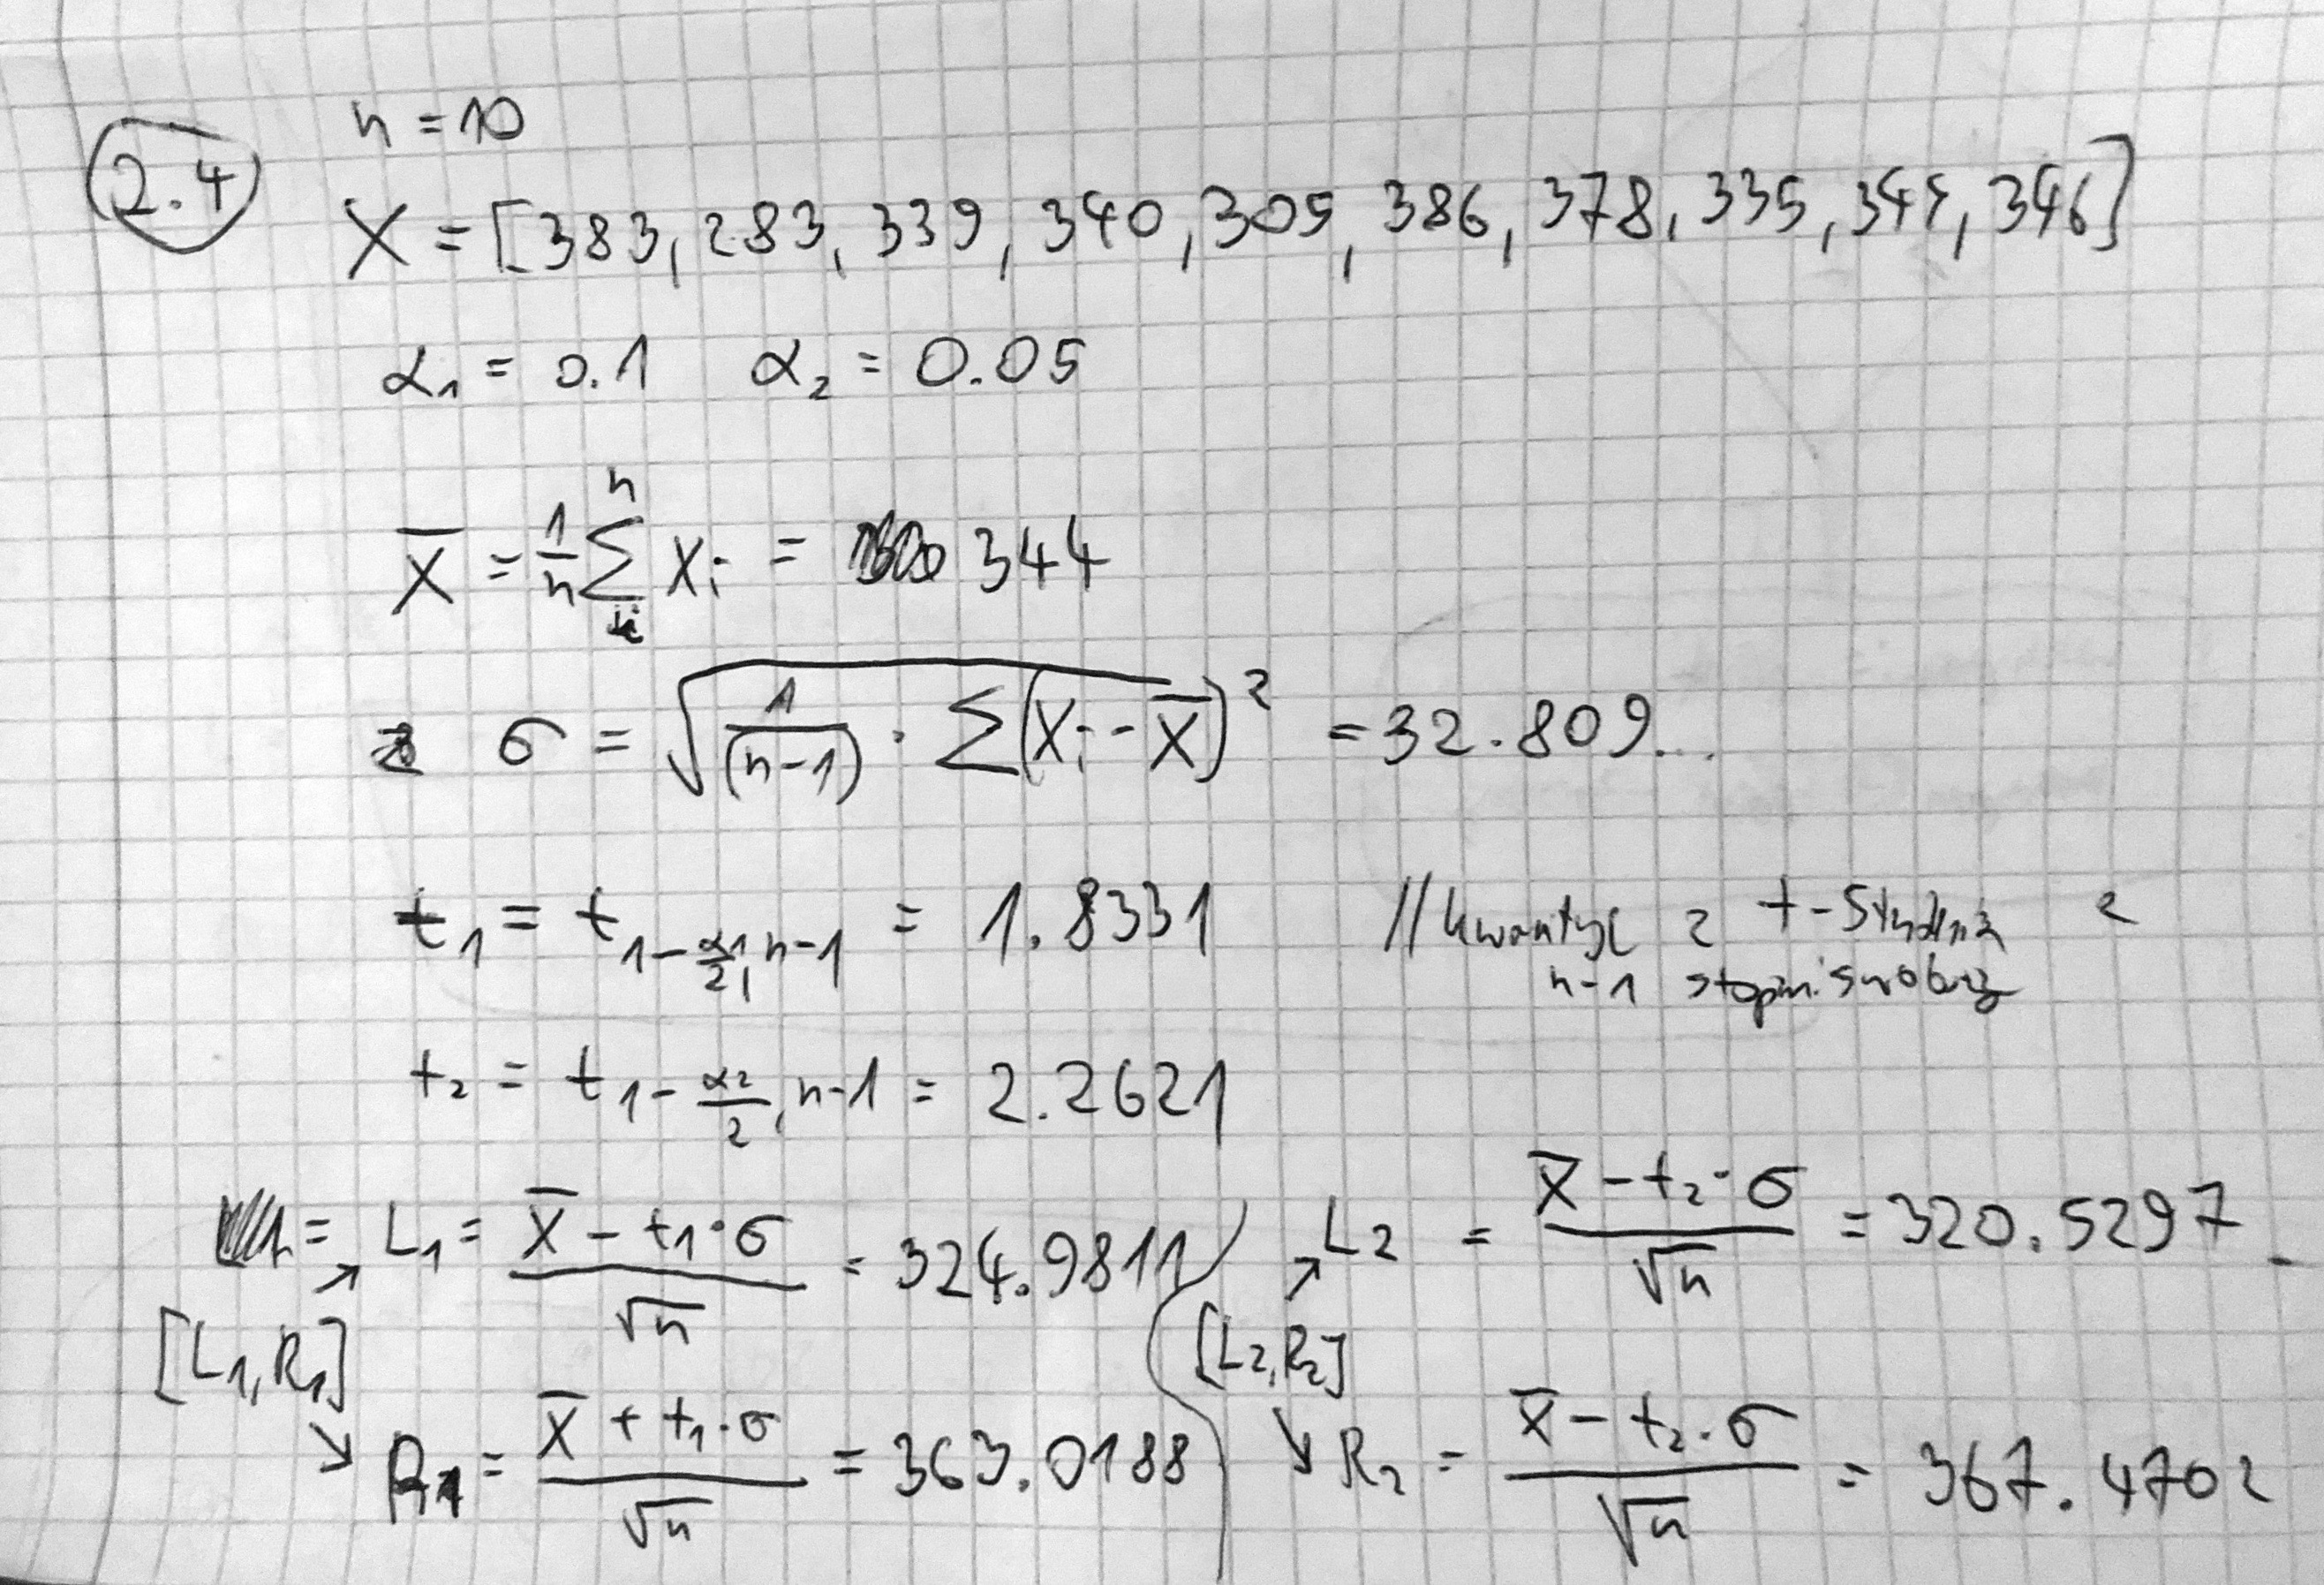 n = 10
2.4
X = [383, 283, 339, 340, 305, 386, 378, 335, 345, 346]
α₁ = 0.1 α₂ = 0.05
X̄ = 1/n ∑ⁿ Xi = 344
σ = √(1/(n-1) · ∑(Xi - X̄)² = 32.809...
t₁ = t₁₋α₁/₂, n-1 = 1.8331 // kwantyl z t-Studenta z
n-1 stopni swobody
t₂ = t₁₋α₂/₂, n-1 = 2.2621
= L₁ = (X̄ - t₁·σ)/√n = 324.9811
L₂ = (X̄ - t₂·σ)/√n = 320.5297
[L₁, R₁]
[L₂, R₂]
R₁ = (X̄ + t₁·σ)/√n = 363.0188
R₂ = (X̄ - t₂·σ)/√n = 367.4702